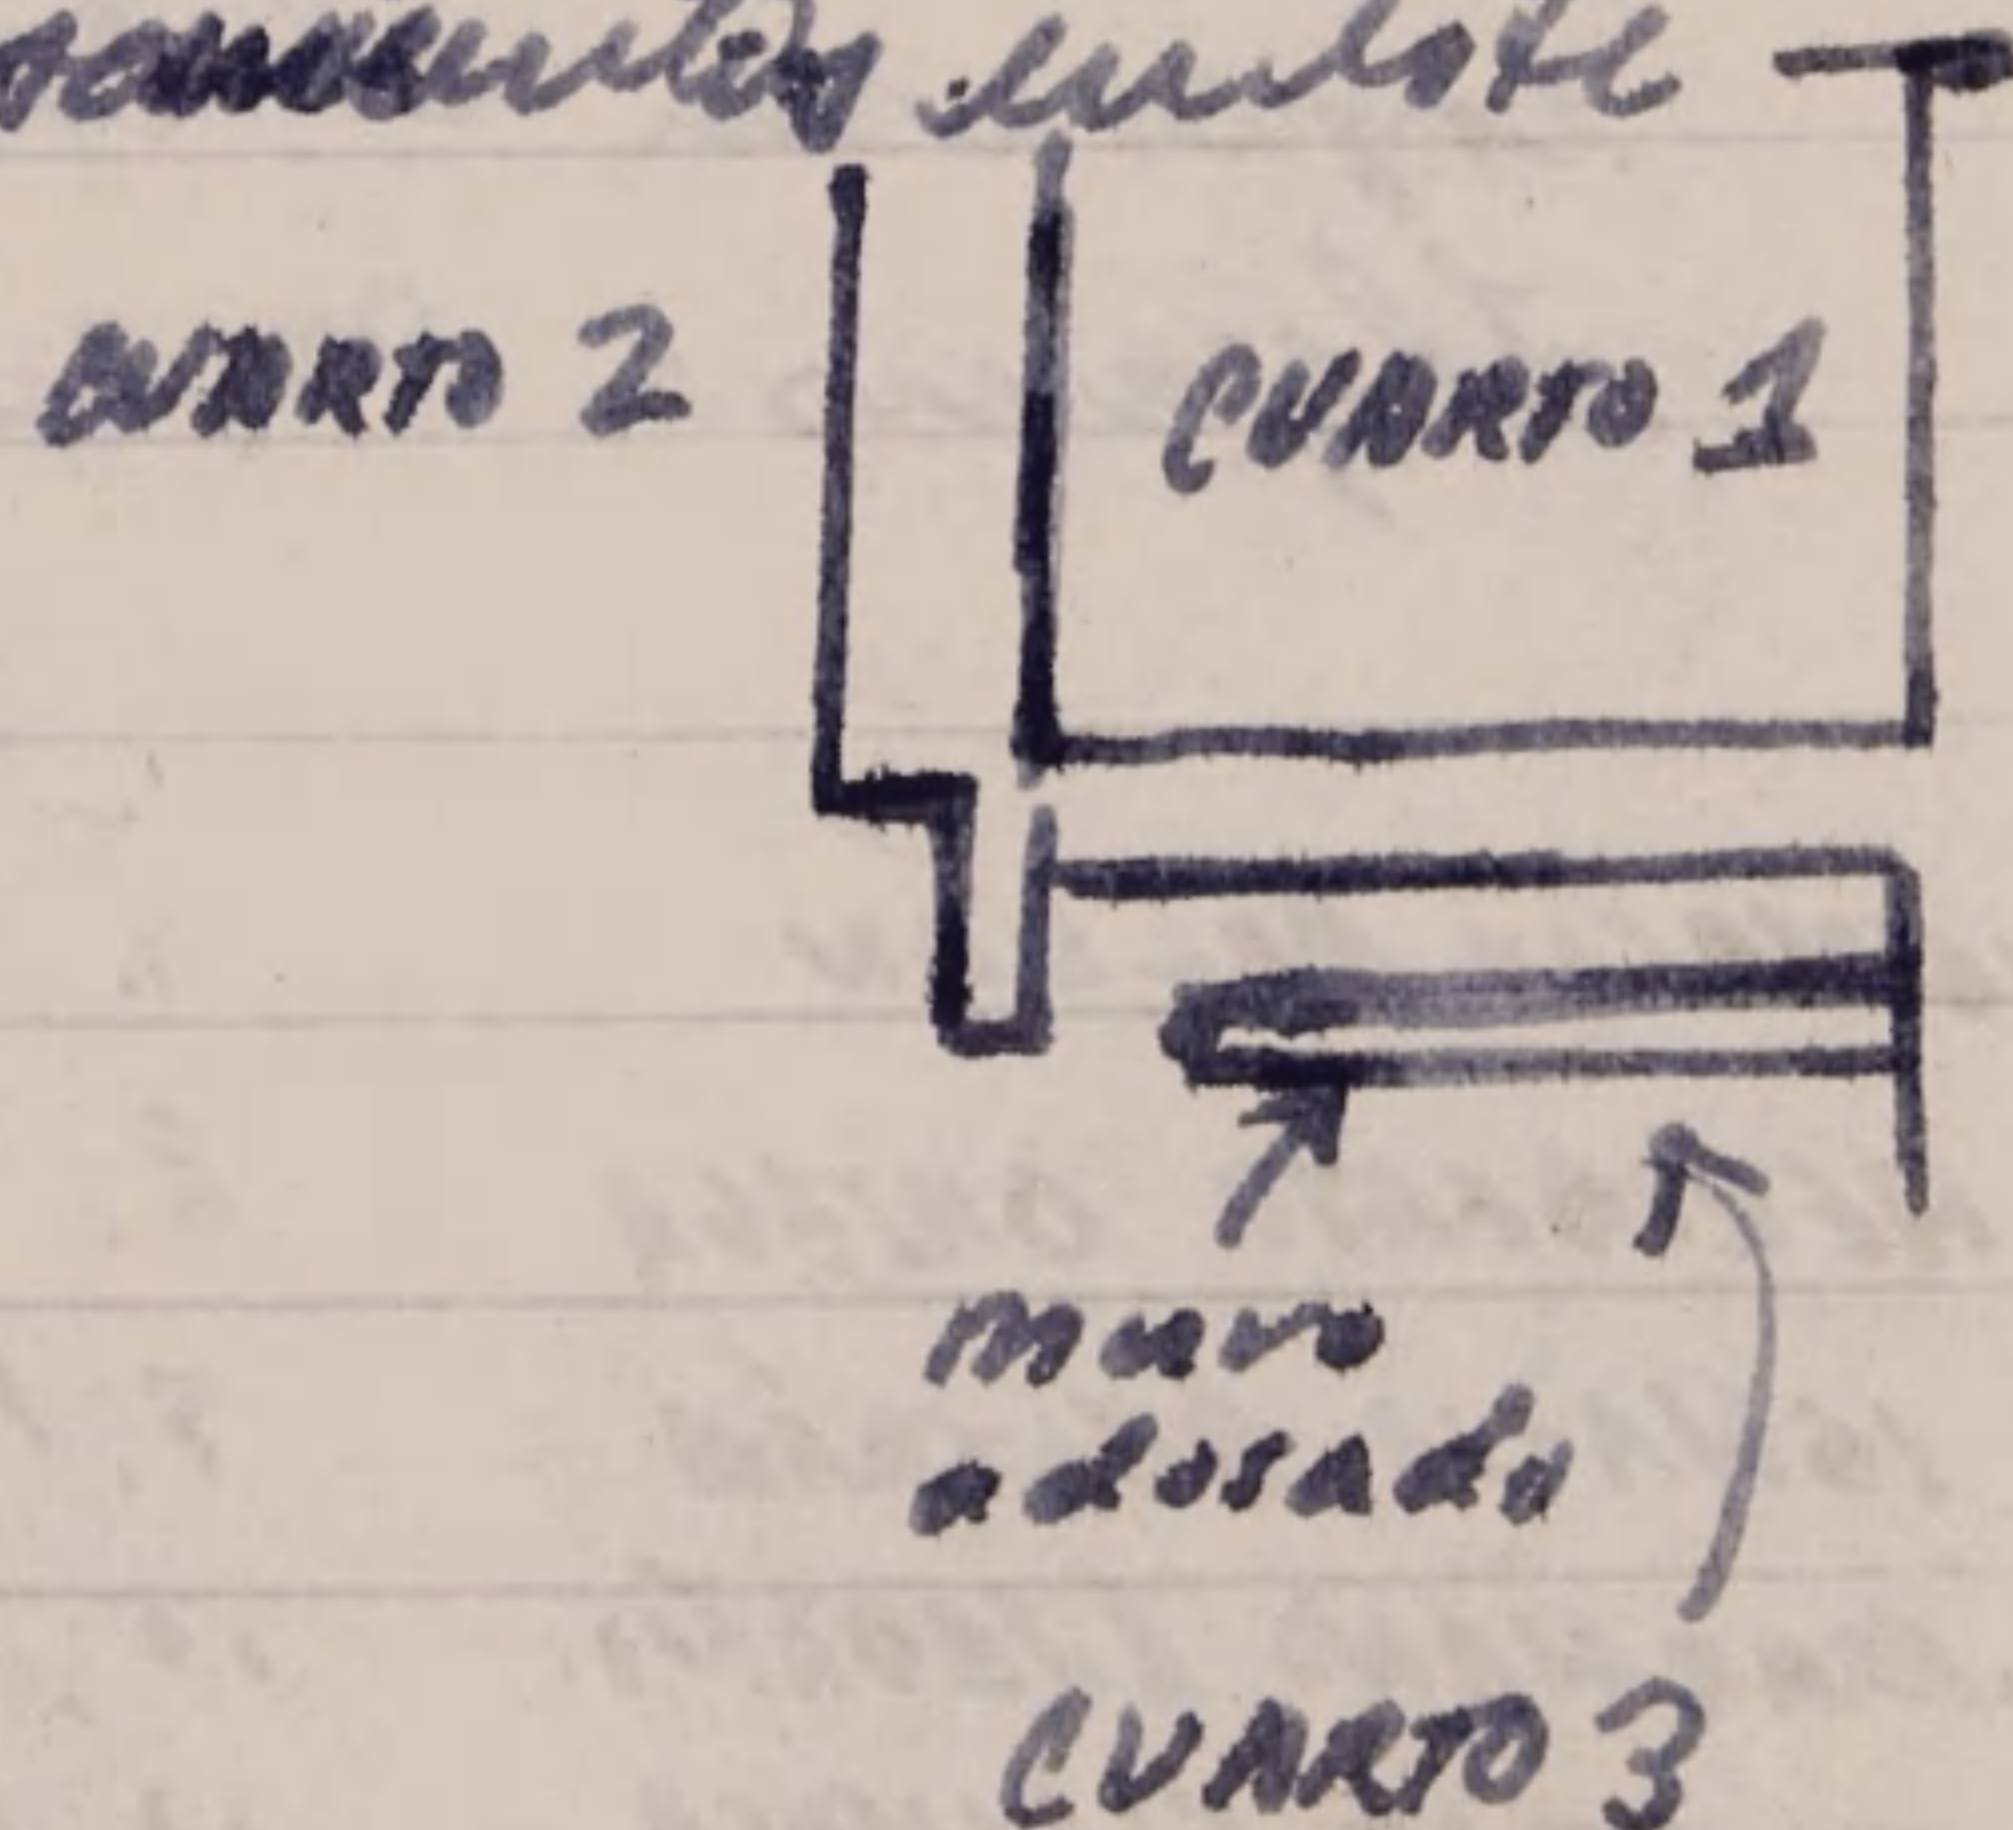 CUARTO 2
CUARTO 1
muro
adosado
CUARTO 3